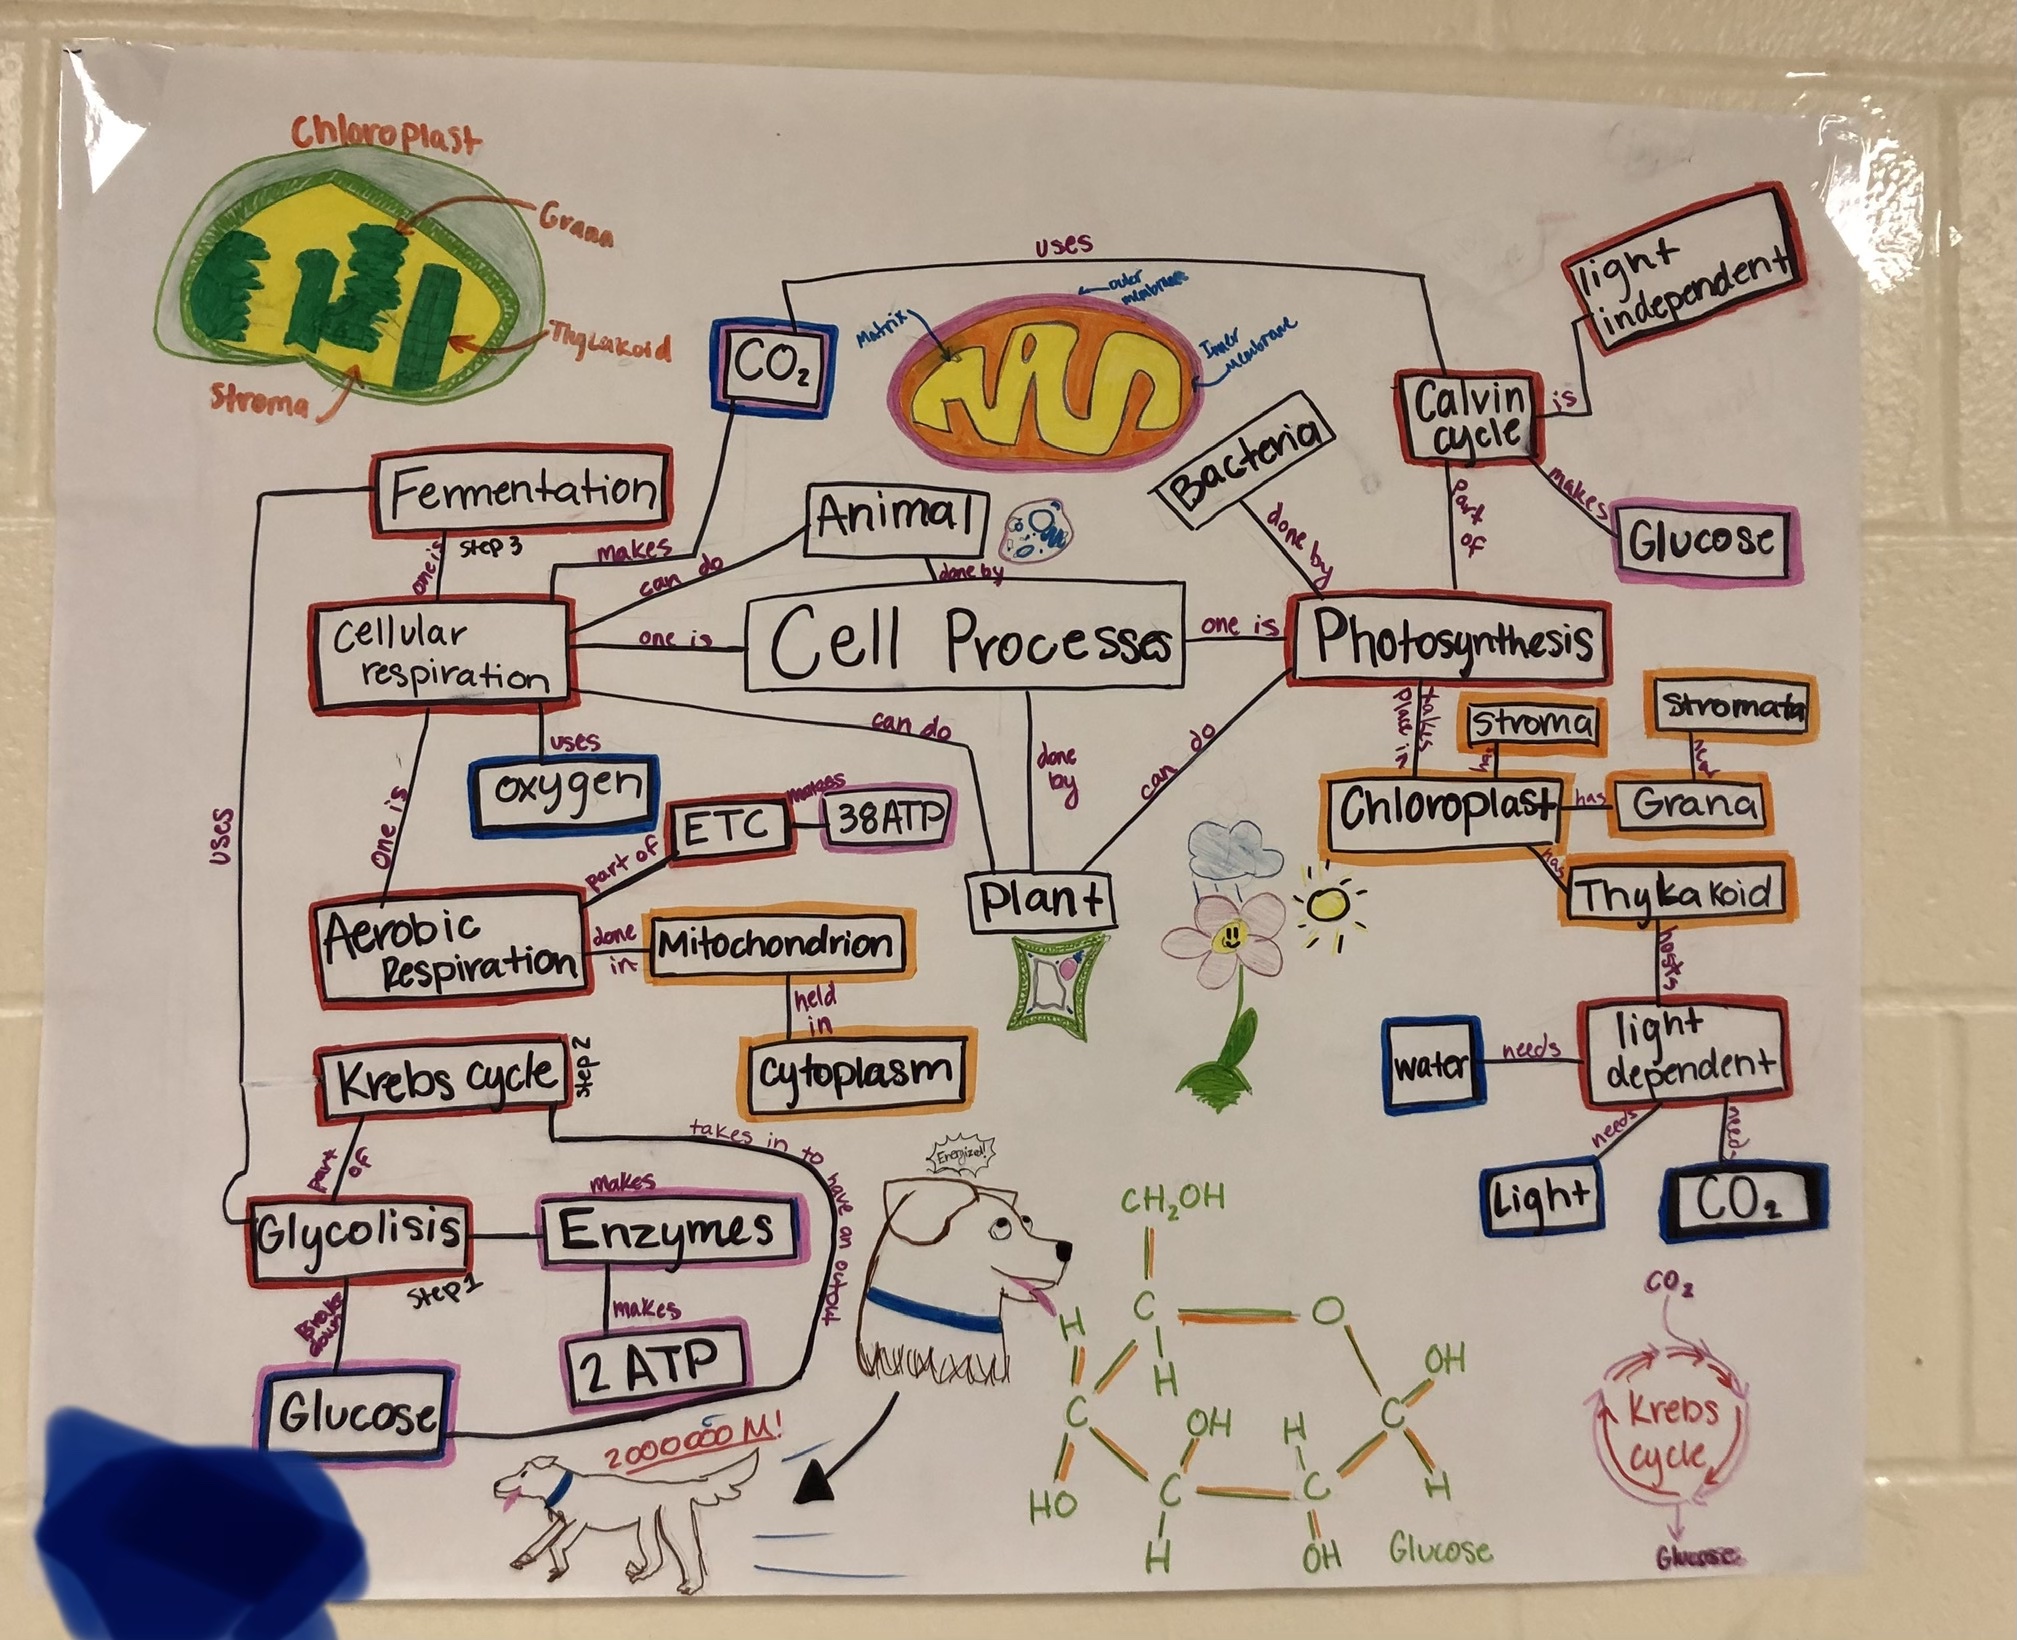 Chloroplast
Grana
Thylakoid
Stroma
uses
CO₂
Matrix
outer
membrane
Inner
membrane
light
independent
is
Calvin
cycle
makes
Glucose
part
of
Bacteria
done by
Fermentation
Step 3
one is
makes
can do
Animal
done by
Cellular
respiration
one is
Cell Processes
one is
Photosynthesis
uses
oxygen
can do
done
by
can do
takes
place in
Stroma
Stromata
Chloroplast
has
Grana
has
Thylakoid
hosts
uses
one is
ETC
makes
38ATP
part of
Aerobic
Respiration
done
in
Mitochondrion
held
in
cytoplasm
Plant
light
dependent
needs
water
needs
Light
CO₂
Krebs cycle
Step 2
part
of
takes in to have an output
Glycolisis
Step 1
makes
Enzymes
makes
2 ATP
Glucose
Energized!
2000000 M!
CH₂OH
H
C
O
H
C
OH
OH
H
C
H
HO
C
C
H
OH
Glucose
CO₂
Krebs
cycle
Glucose